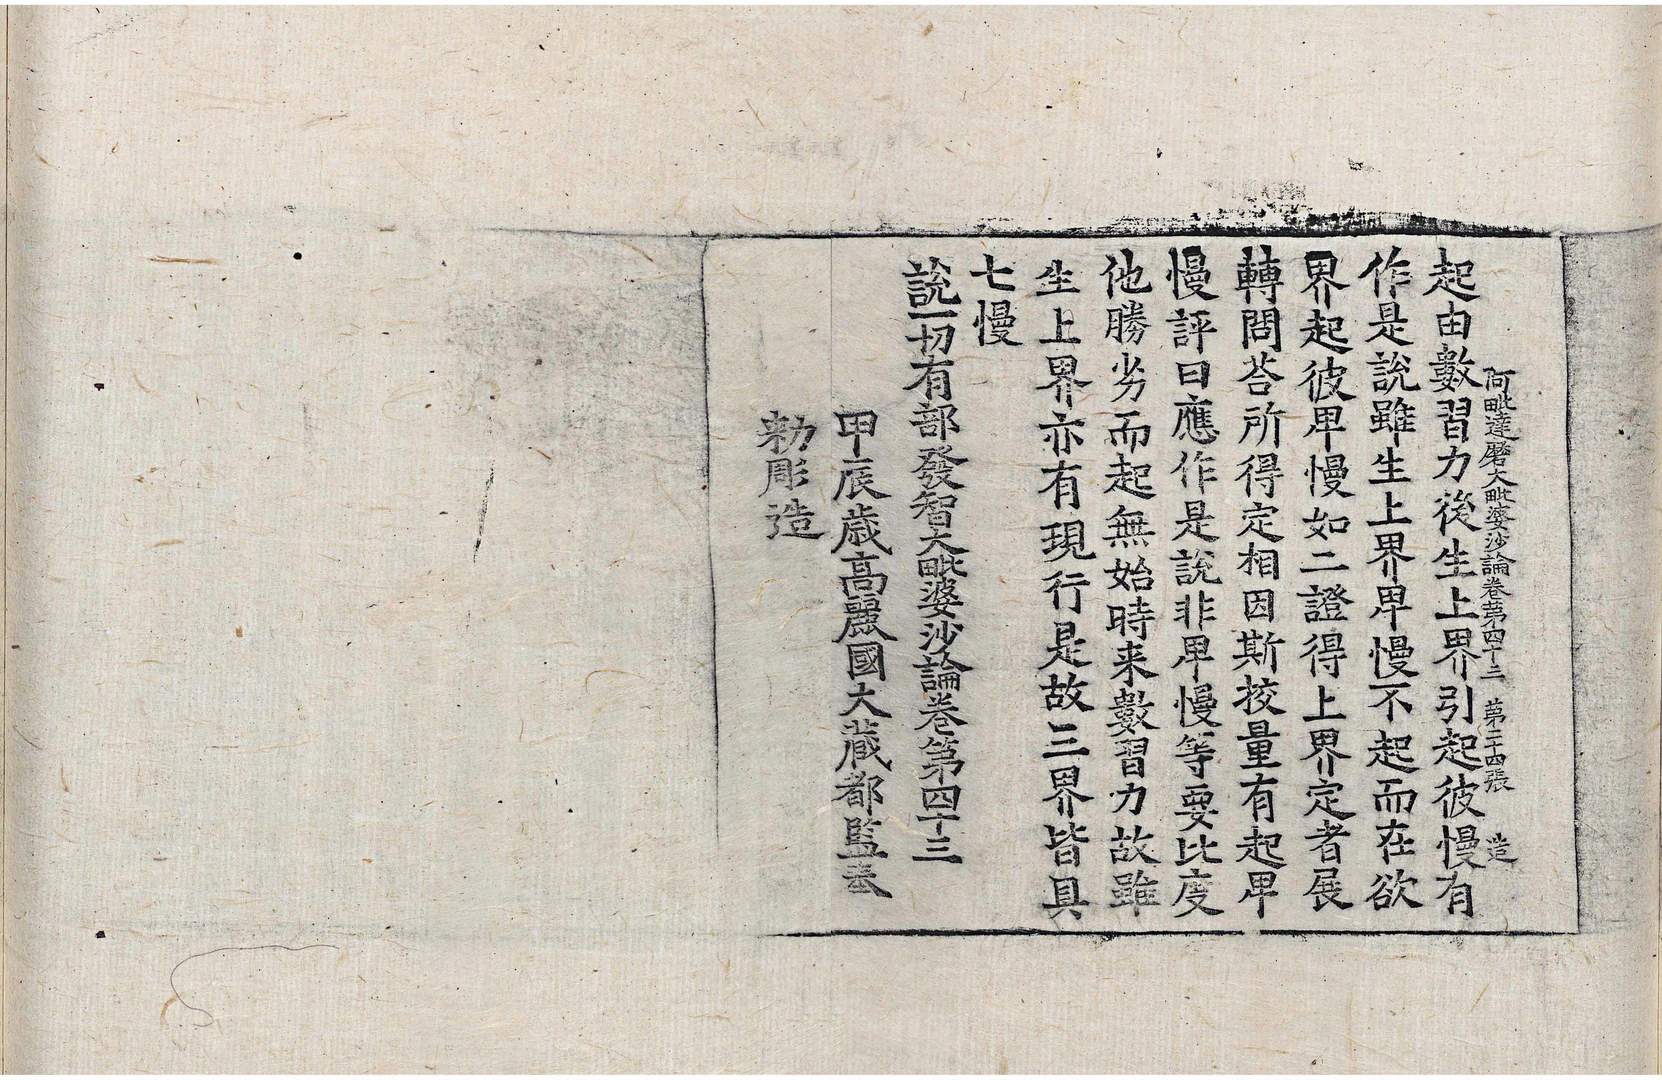 阿毗達磨大毗婆沙論卷第四十三　第二十四張　造
起由數習力後生上界引起彼慢有
作是說雖生上界卑慢不起而在欲
界起彼卑慢如二證得上界定者展
轉問荅所得定相因斯挍量有起卑
慢評曰應作是說非卑慢等要比度
他勝劣而起無始時来數習力故雖
生上界亦有現行是故三界皆具
七慢
說一切有部發智大毗婆沙論卷第四十三
甲辰歳高麗國大藏都監奉
勅彫造